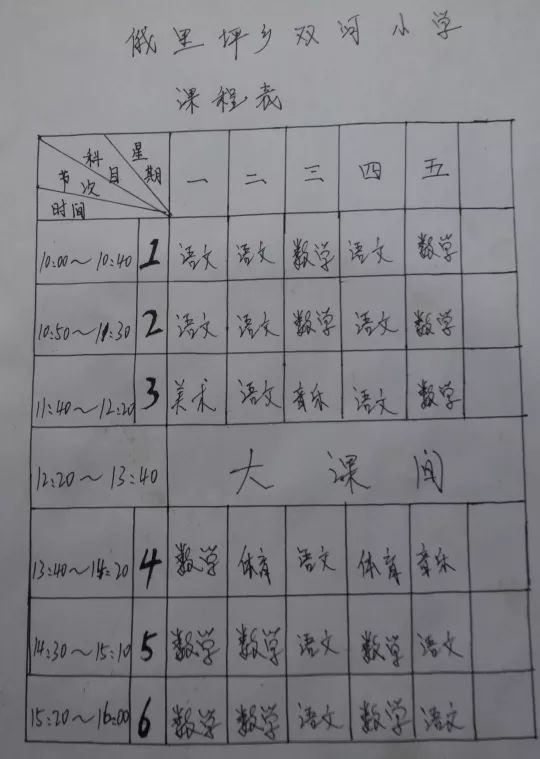 俄里坪乡双河小学
课程表
星期 科目 节次 时间 一 二 三 四 五
10:00～10:40 1 语文 语文 数学 语文 数学
10:50～11:30 2 语文 语文 数学 语文 数学
11:40～12:20 3 美术 语文 音乐 语文 数学
12:20～13:40 大课间
13:40～14:20 4 数学 体育 语文 体育 音乐
14:30～15:10 5 数学 数学 语文 数学 语文
15:20～16:00 6 数学 数学 语文 数学 语文